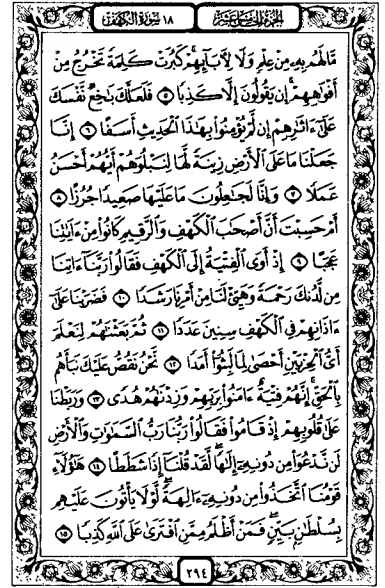 الجزء الخامس عشر ١٨ سورة الكهف
مَّا لَهُم بِهِۦ مِنْ عِلْمٍ وَلَا لِآبَآئِهِمْ كَبُرَتْ كَلِمَةً تَخْرُجُ مِنْ
أَفْوَٰهِهِمْ إِن يَقُولُونَ إِلَّا كَذِبًا ٥ فَلَعَلَّكَ بَٰخِعٌ نَّفْسَكَ
عَلَىٰٓ ءَاثَٰرِهِمْ إِن لَّمْ يُؤْمِنُوا۟ بِهَٰذَا ٱلْحَدِيثِ أَسَفًا ٦ إِنَّا
جَعَلْنَا مَا عَلَى ٱلْأَرْضِ زِينَةً لَّهَا لِنَبْلُوَهُمْ أَيُّهُمْ أَحْسَنُ
عَمَلًا ٧ وَإِنَّا لَجَٰعِلُونَ مَا عَلَيْهَا صَعِيدًا جُرُزًا ٨
أَمْ حَسِبْتَ أَنَّ أَصْحَٰبَ ٱلْكَهْفِ وَٱلرَّقِيمِ كَانُوا۟ مِنْ ءَايَٰتِنَا
عَجَبًا ٩ إِذْ أَوَى ٱلْفِتْيَةُ إِلَى ٱلْكَهْفِ فَقَالُوا۟ رَبَّنَآ ءَاتِنَا
مِن لَّدُنكَ رَحْمَةً وَهَيِّئْ لَنَا مِنْ أَمْرِنَا رَشَدًا ١٠ فَضَرَبْنَا عَلَىٰٓ
ءَاذَانِهِمْ فِى ٱلْكَهْفِ سِنِينَ عَدَدًا ١١ ثُمَّ بَعَثْنَٰهُمْ لِنَعْلَمَ
أَىُّ ٱلْحِزْبَيْنِ أَحْصَىٰ لِمَا لَبِثُوٓا۟ أَمَدًا ١٢ نَّحْنُ نَقُصُّ عَلَيْكَ نَبَأَهُم
بِٱلْحَقِّ إِنَّهُمْ فِتْيَةٌ ءَامَنُوا۟ بِرَبِّهِمْ وَزِدْنَٰهُمْ هُدًى ١٣ وَرَبَطْنَا
عَلَىٰ قُلُوبِهِمْ إِذْ قَامُوا۟ فَقَالُوا۟ رَبُّنَا رَبُّ ٱلسَّمَٰوَٰتِ وَٱلْأَرْضِ
لَن نَّدْعُوَا۟ مِن دُونِهِۦٓ إِلَٰهًا لَّقَدْ قُلْنَآ إِذًا شَطَطًا ١٤ هَٰٓؤُلَآءِ
قَوْمُنَا ٱتَّخَذُوا۟ مِن دُونِهِۦٓ ءَالِهَةً لَّوْلَا يَأْتُونَ عَلَيْهِم
بِسُلْطَٰنٍۭ بَيِّنٍ فَمَنْ أَظْلَمُ مِمَّنِ ٱفْتَرَىٰ عَلَى ٱللَّهِ كَذِبًا ١٥
٢٩٤